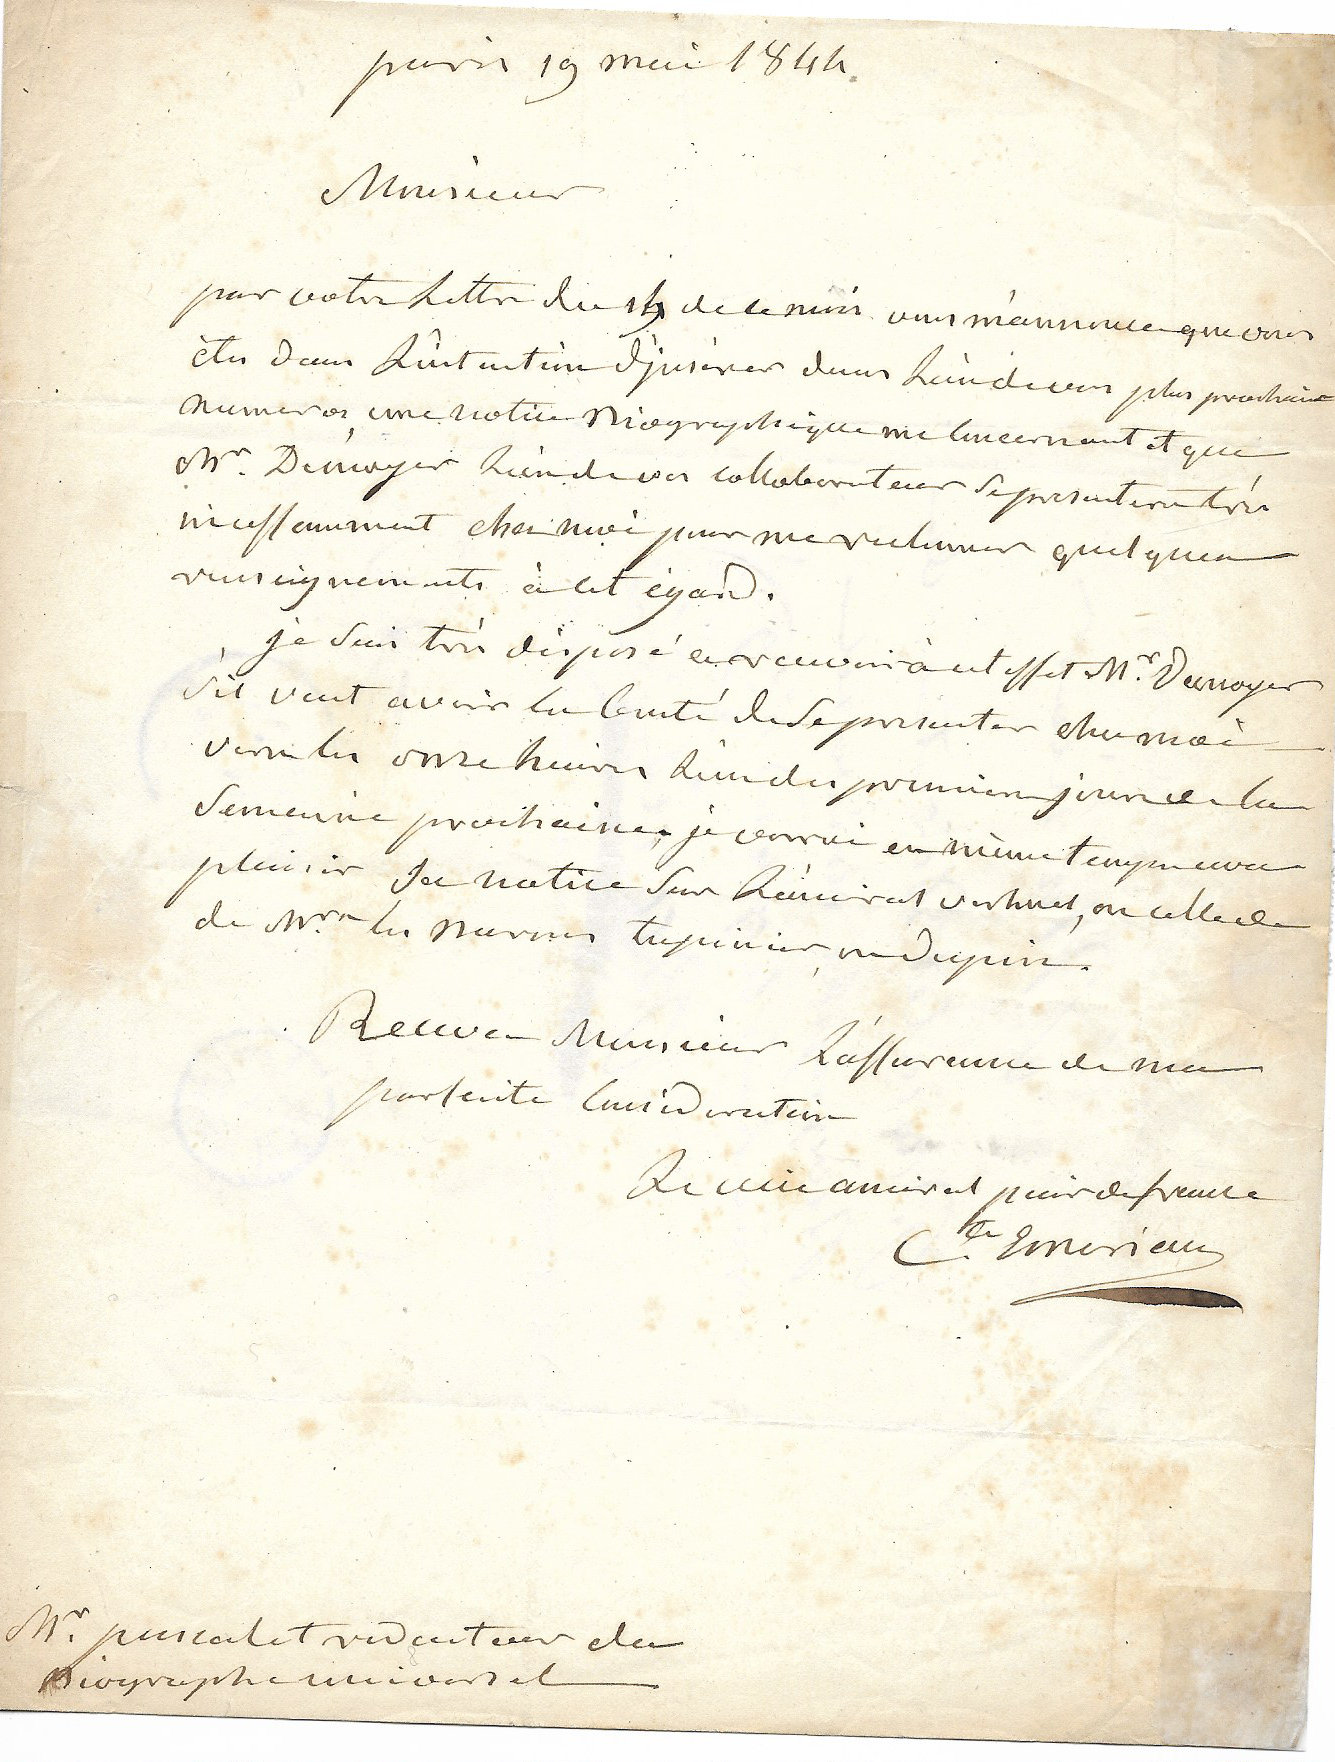 paris 19 mai 1844.
Monsieur
par votre Lettre du de ce mois vous m'annoncez que vous
êtes dans L'intention d'jnsérer dans L'un de vos plus prochains
numeros, une notice Biographique me Concernant et que
Mr. Dénoyer L'un de vos collaborateurs se presentera très
incessamment chez moi pour me reclamer quelques
renseignements à cet égard.
je suis très disposé a recevoir à cet effet Mr. Denoyer
s'il veut avoir la bonté de se presenter chez moi
vers les onze heures L'un des premiers jours de la
semaine prochaine, je verrai en même temps avec
plaisir la notice sur L'amiral verhuel, ou celle de
de Mrs. les Barons tupinier, ou Dupin.
Recevez Monsieur L'assurance de ma
parfaite Considération
Le vice amiral pair de france
Cte. Emeriau
Mr. pascalet redacteur du
Biographe universel